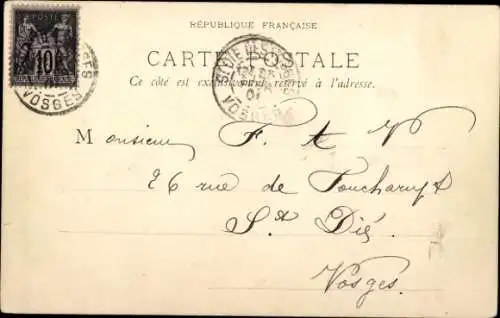 RÉPUBLIQUE FRANÇAISE
CARTE POSTALE
Ce côté est exclusivement réservé à l'adresse.
POSTE
10
VOSGES
ST DIE DES VOSGES
Monsieur F. A V
26 rue de Foucharupt
St Dié.
Vosges.